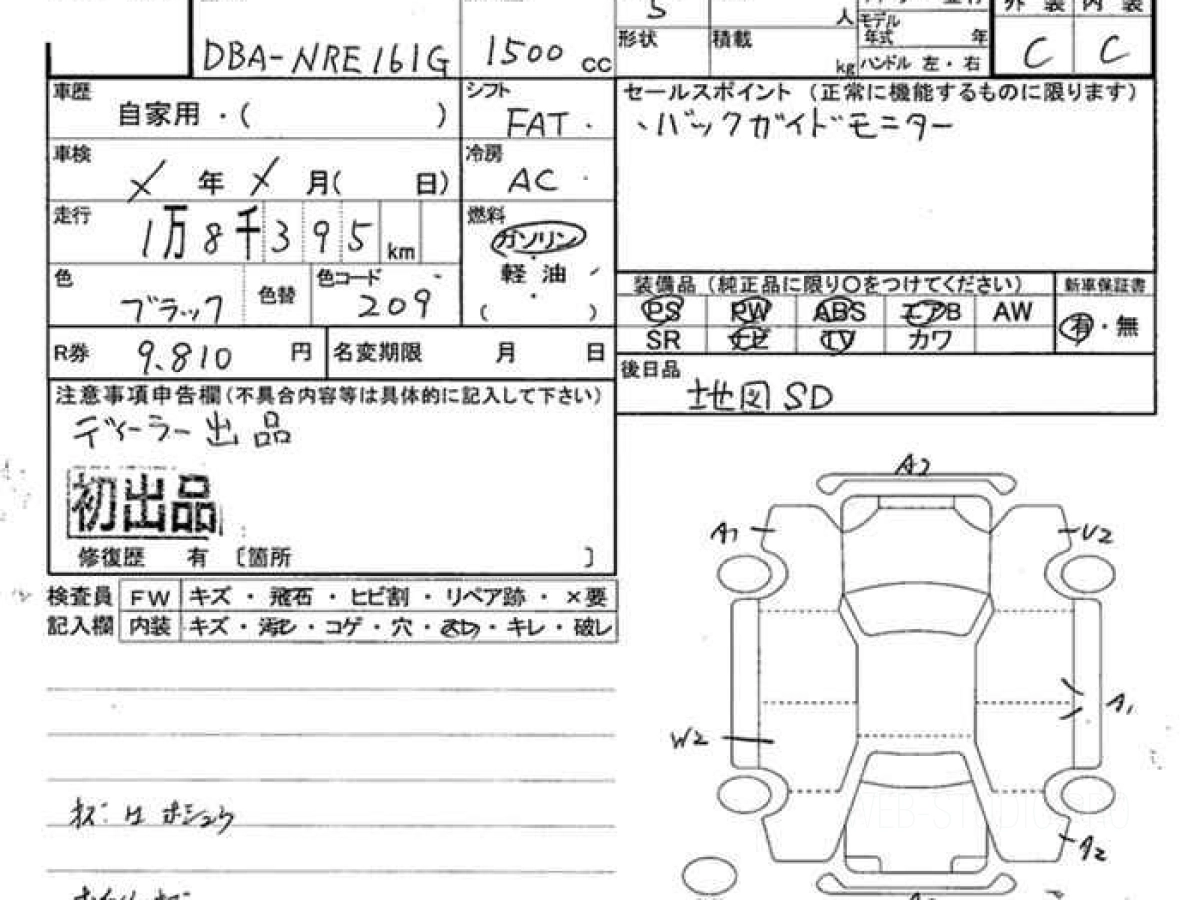 5 人 モデル 年式 年 外装 内装
DBA-NRE161G 1500 cc 形状 積載 kg ハンドル 左・右 C C
車歴 自家用・( )
シフト FAT
セールスポイント (正常に機能するものに限ります)
、バックガイドモニター
車検 年 月( 日)
冷房 AC
走行 1万8千395 km
燃料 ガソリン
軽油
( )
色 ブラック 色替 色コード 209
装備品 (純正品に限り○をつけてください) 新車保証書
PS PW ABS エアB AW 有・無
SR ナビ TV カワ
R券 9.810 円 名変期限 月 日
後日品 地図SD
注意事項申告欄(不具合内容等は具体的に記入して下さい)
ディーラー出品
初出品
修復歴 有 〔箇所 〕
検査員 FW キズ・飛石・ヒビ割・リペア跡・×要
記入欄 内装 キズ・汚レ・コゲ・穴・・キレ・破レ
A2
A1 U2
A1
W2
A2
WEB-STUDIO.PRO